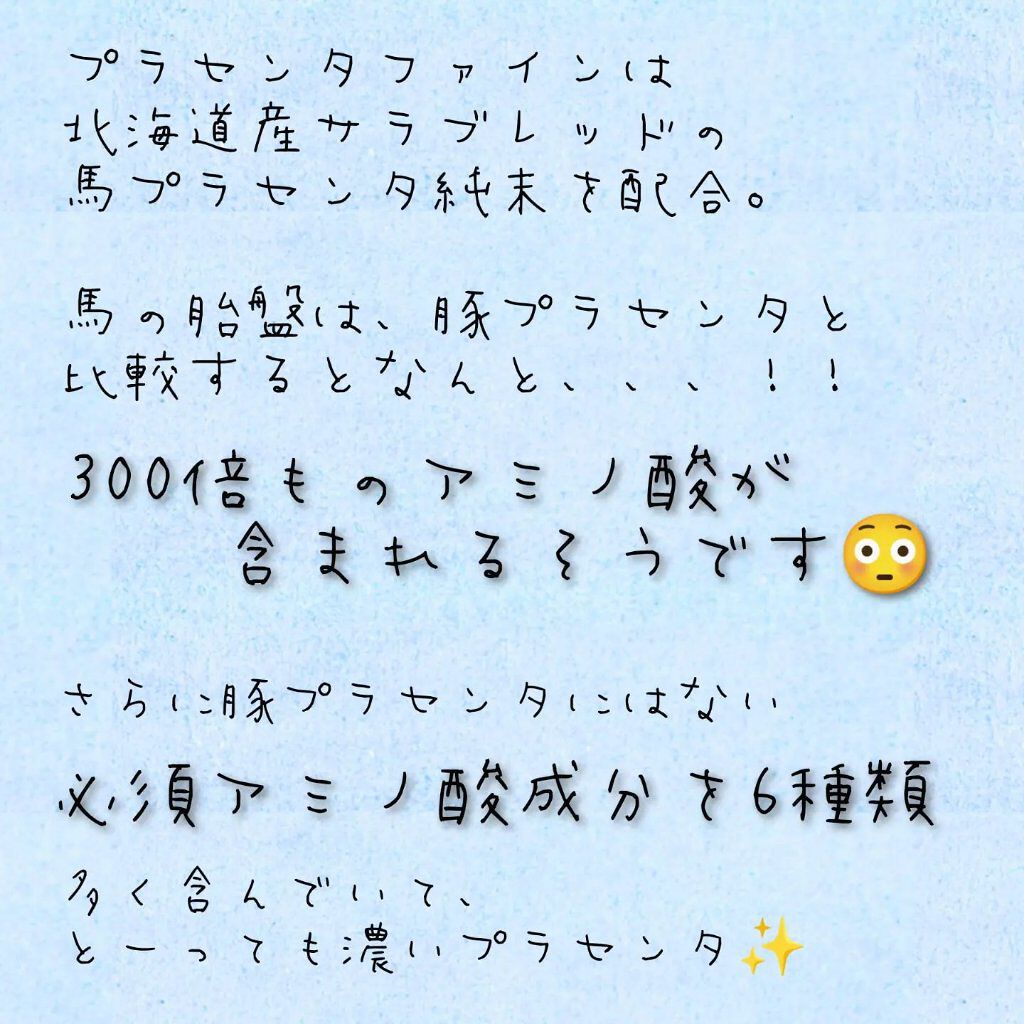 プラセンタファインは
北海道産サラブレッドの
馬プラセンタ純末を配合。
馬の胎盤は、豚プラセンタと
比較するとなんと、、、！！
300倍ものアミノ酸が
含まれるそうです😳
さらに豚プラセンタにはない
必須アミノ酸成分を6種類
多く含んでいて、
とーっても濃いプラセンタ✨